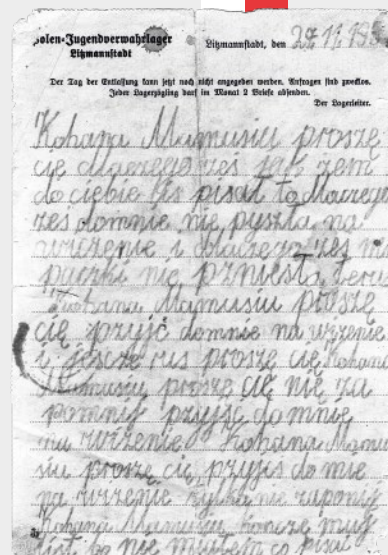 Polen-Jugendverwahrlager
Litzmannstadt
Litzmannstadt, den 27. 11. 19
Der Tag der Entlassung kann jetzt noch nicht angegeben werden. Anfragen sind zwecklos.
Jeder Lagerzögling darf im Monat 2 Briefe absenden.
Der Lagerleiter.
Kohana Mamusiu proszę
cię dlaczego żeś jak żem
do ciebie lis pisał to dlaczego
żeś domnie nie pszyszła na
wizenie i dlaczego żeś mi
paczki nie pszniesła teraz
Kohana Mamusiu proszę
cię pszyjć domnie na wizenie
i jescze rus proszę cię Kohana
Mamusiu proszę cię nie za
pomnij pszyjść domnie
na wizenie Kohana Mamu
siu proszę cię pszyjś do mie
na wizenie tylko nie zapomij
Kohana Mamusiu kończę muj
list bo nie miałem co pisać